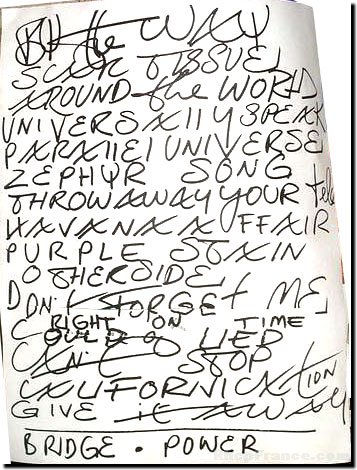 By the WAY
SCAR TISSUE
AROUND the WORLD
UNIVERSAllY SPEAK
PARAllEl UNIVERSE
ZEPHYR SONG
THROW AWAY YOUR tele
HAVANA AFFAIR
PURPLE STAIN
OTHERSIDE
DON't FORGEt ME
RIGHT ON TIME
COULD A LIED
CAN't STOP
CALIFORNICATION
GIVE it AWAY
BRIDGE • POWER
rhcpfrance.com